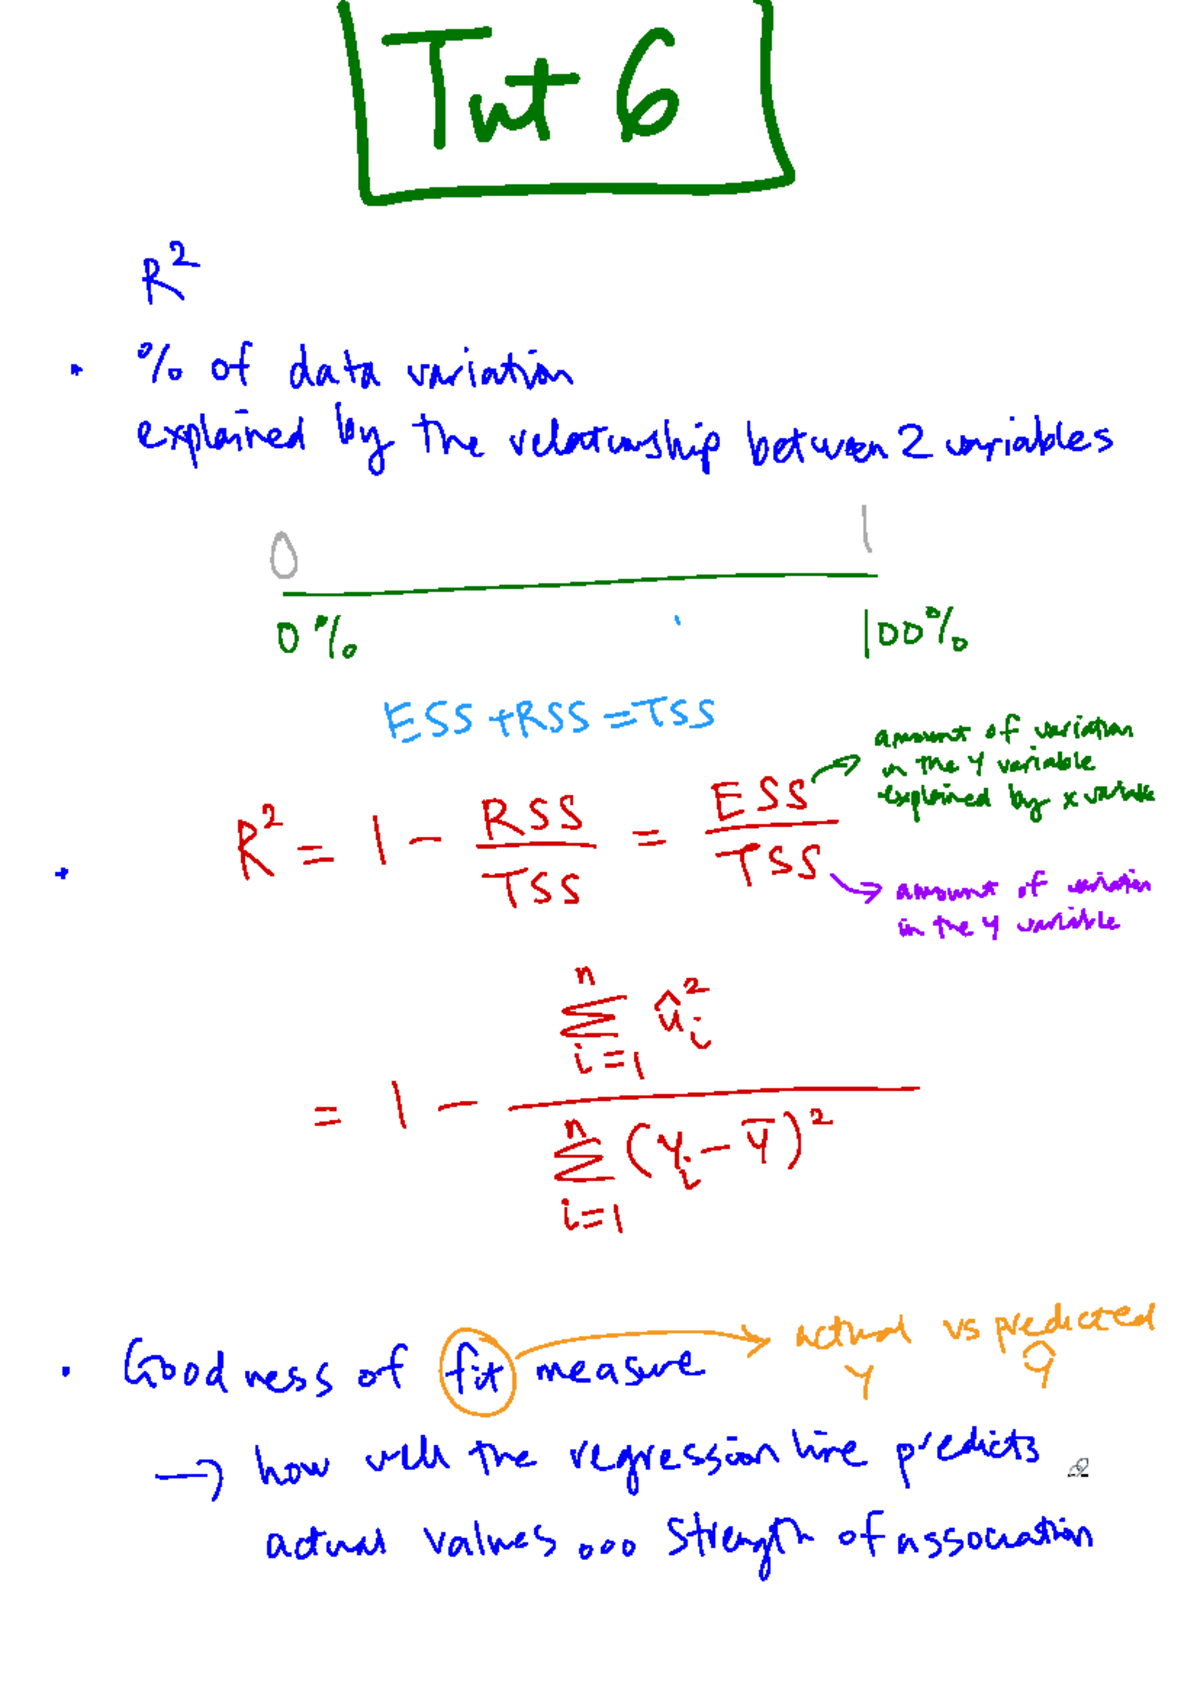 Tut 6
R²
• % of data variation
explained by the relationship between 2 variables
0 1
0% 100%
ESS + RSS = TSS
amount of variation
in the Y variable
explained by x variable
• R² = 1 - RSS/TSS = ESS/TSS
amount of variation
in the Y variable
= 1 - \frac{\sum_{i=1}^{n} û_i^2}{\sum_{i=1}^{n} (Y_i - \bar{Y})^2}
• Goodness of fit measure → actual vs predicted
Y Ŷ
→ how well the regression line predicts
actual values ... strength of association